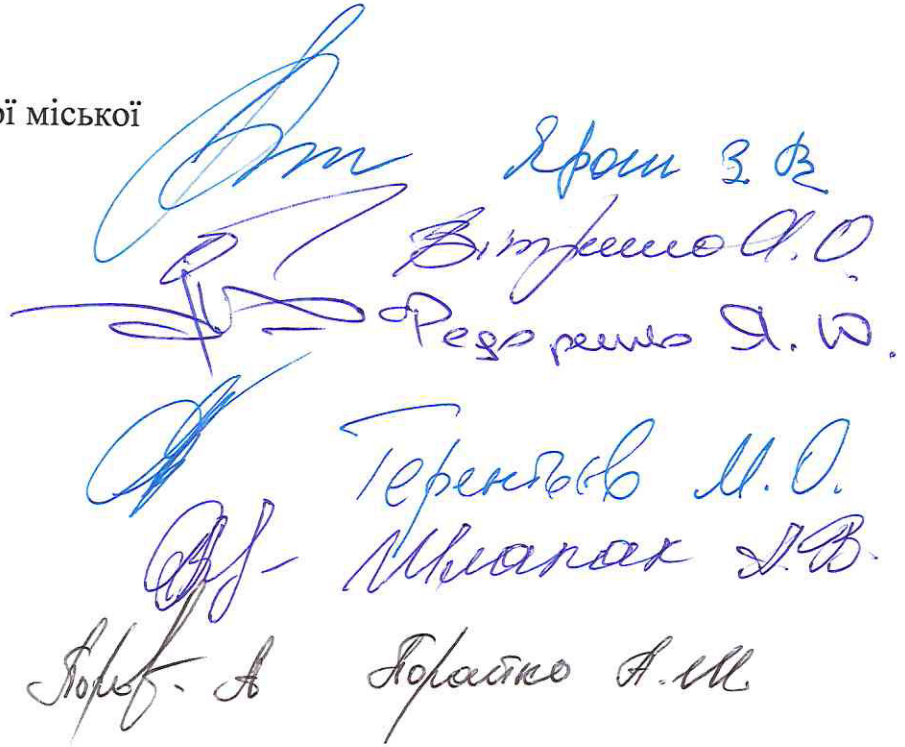 ої міської
Ярош З В
Вітренко О.О.
Федоренко Я.Ю.
Терентьєв М.О.
Шлапак А.В.
Порайко А.М.